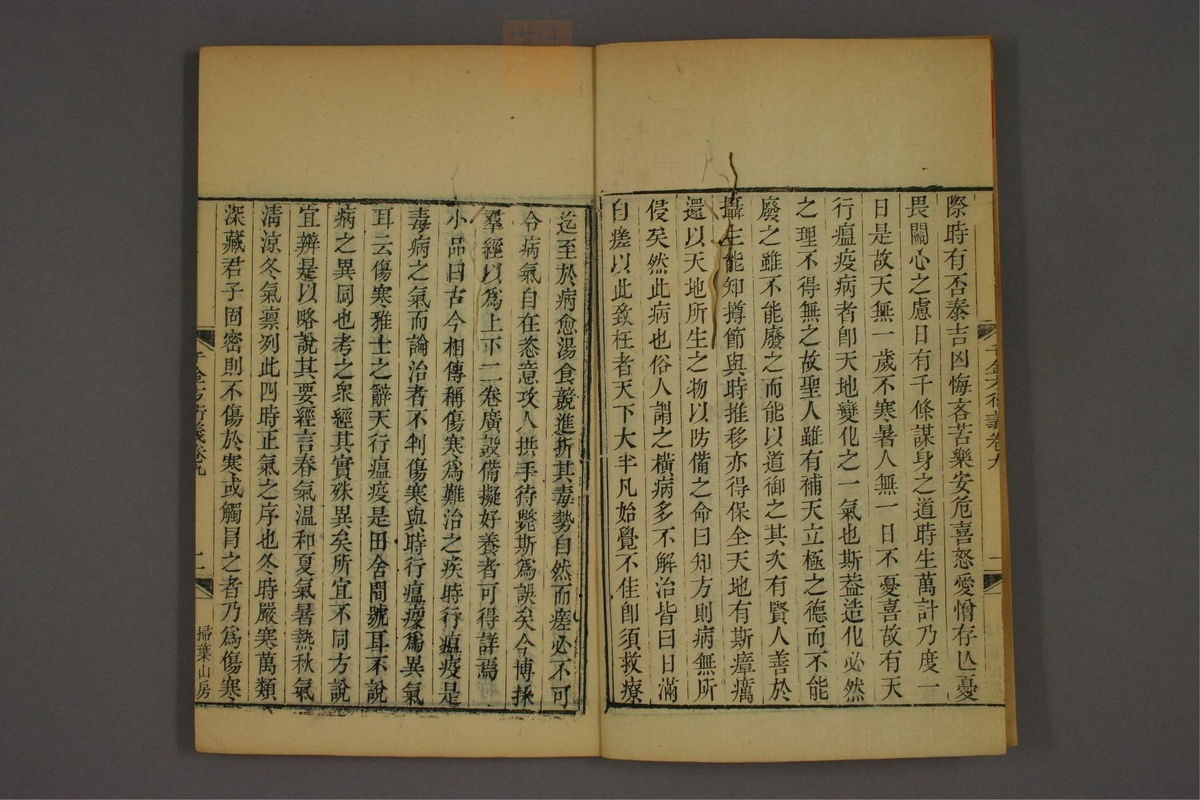 際時有否泰吉凶悔吝苦樂安危喜怒愛憎存亾憂
畏關心之慮日有千條謀身之道時生萬計乃度一
日是故天無一歲不寒暑人無一日不憂喜故有天
行瘟疫病者卽天地變化之一氣也斯葢造化必然
之理不得無之故聖人雖有補天立極之德而不能
廢之雖不能廢之而能以道御之其次有賢人善於
攝生能知撙節與時推移亦得保全天地有斯瘴癘
還以天地所生之物以防備之命曰知方則病無所
侵矣然此病也俗人謂之橫病多不解治皆曰日滿
自瘥以此致枉者天下大半凡始覺不佳卽須救療
迄至於病愈湯食競進折其毒勢自然而瘥必不可
令病氣自在恣意攻人拱手待斃斯爲誤矣今博採
羣經以爲上下二卷廣設備擬好養者可得詳焉
小品曰古今相傳稱傷寒爲難治之疾時行瘟疫是
毒病之氣而論治者不判傷寒與時行瘟疫爲異氣
耳云傷寒雅士之辭天行瘟疫是田舍間號耳不說
病之異同也考之衆經其實殊異矣所宜不同方說
宜辨是以略說其要經言春氣溫和夏氣暑熱秋氣
淸涼冬氣凛列此四時正氣之序也冬時嚴寒萬類
深藏君子固密則不傷於寒或觸冒之者乃爲傷寒
千金方衍義卷九
二
掃葉山房